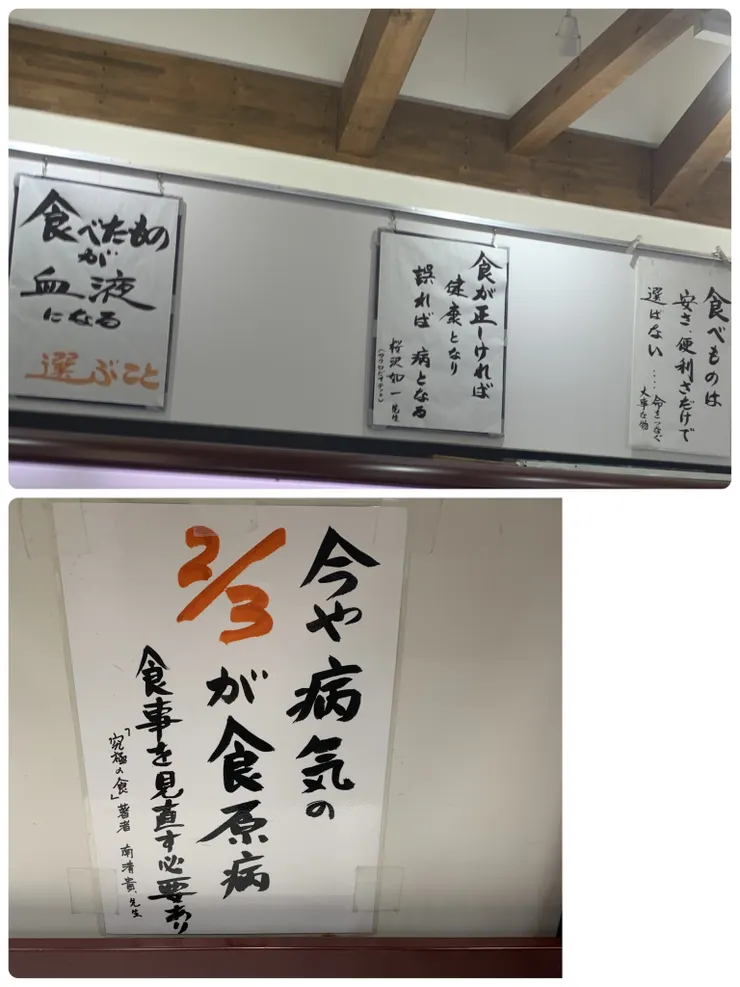 食べたもの
が
血液
になる
選ぶこと
食が正しければ
健康となり
誤れば 病となる
桜沢如一先生
(マクロビオティック)
食べものは
安さ、便利さだけで
選ばない‥‥命をつなぐ
大事な物
今や病気の
2/3が食原病
食事を見直す必要あり
「究極の食」著者 南清貴先生